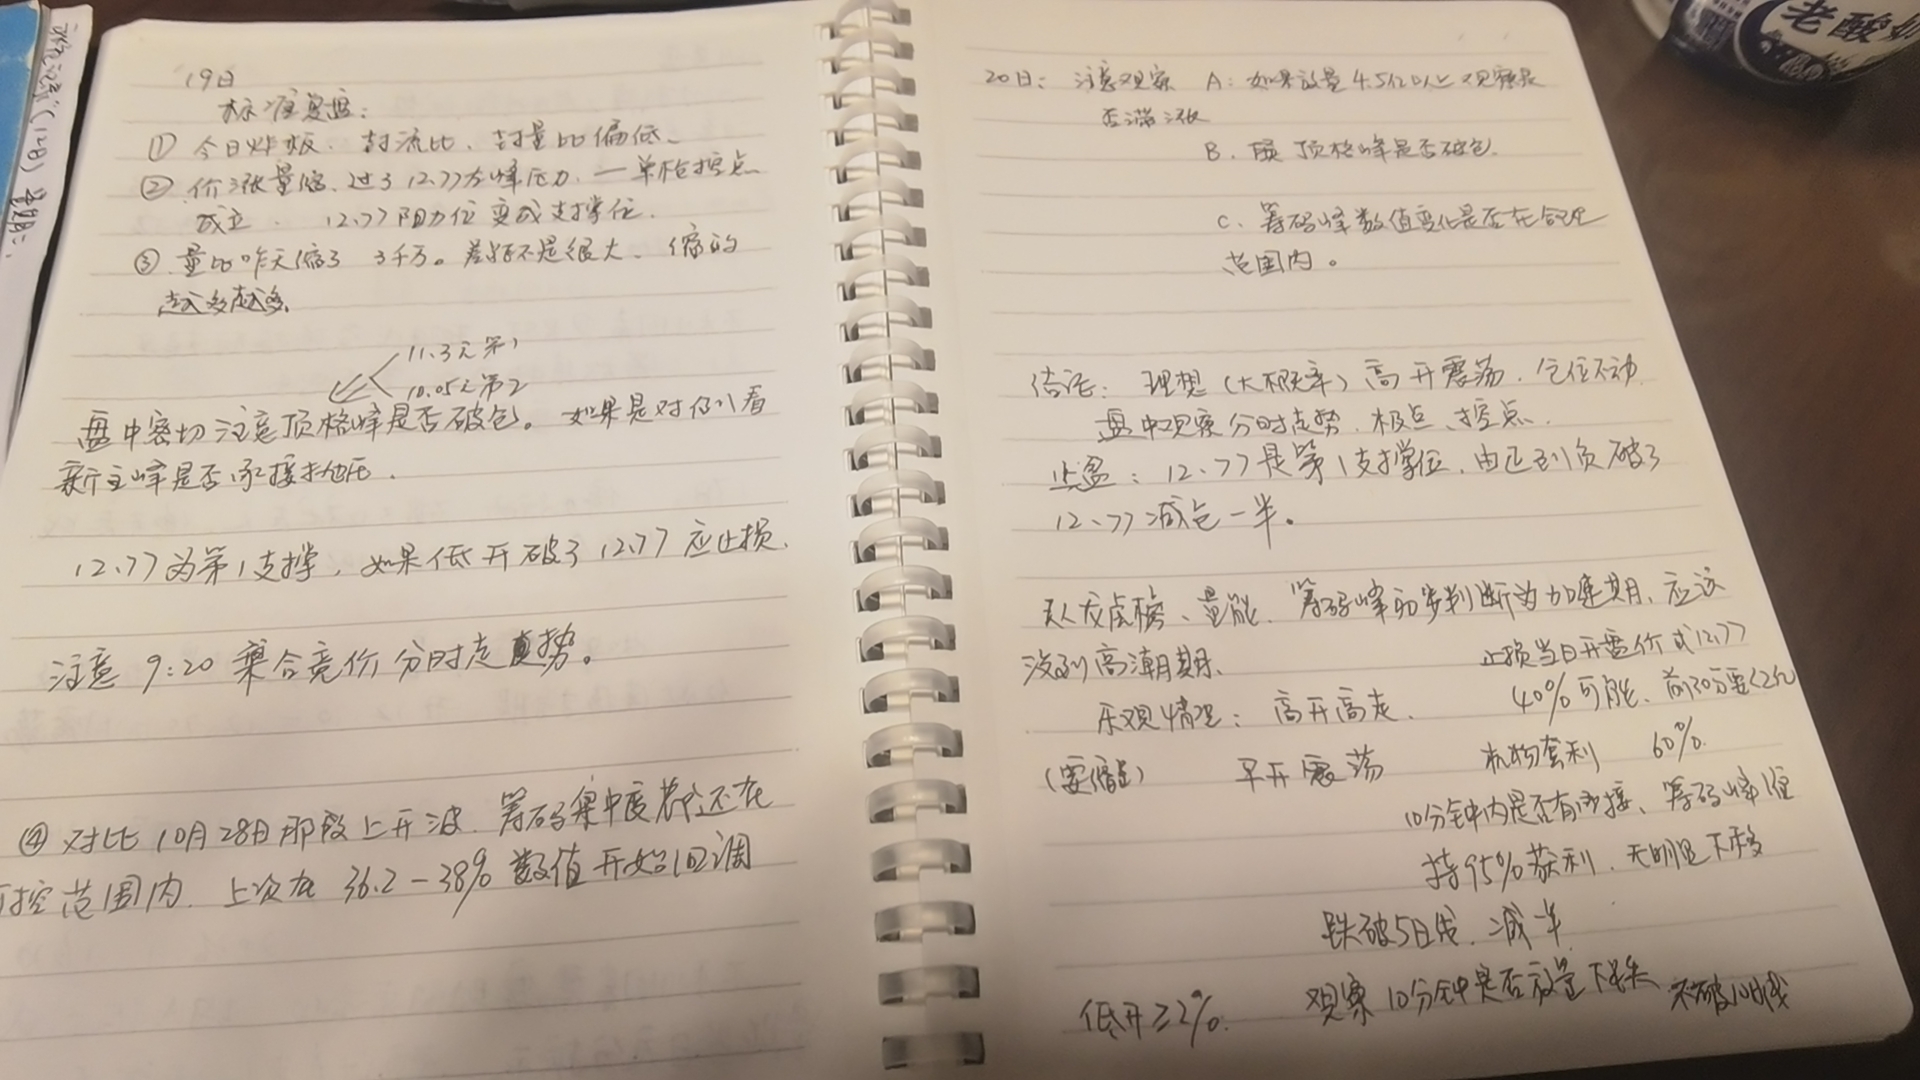 19日
标准复盘：
① 今日炸板、封流比、封量比偏低、
② 价涨量缩，过了12.77左峰压力，一单枪控点
成立． 12.77阻力位变成支撑位．
③ 量比昨天缩了 3千万。差距不是很大、缩的
越多越多．
11.3元第1
10.05元第2
盘中密切注意顶格峰是否破包。如果是对倒看
新主峰是否承接抛压．
12.77为第1支撑，如果低开破了12.77应止损．
注意 9:20 集合竞价分时走势。
④ 对比10月28日那段上升波．筹码集中度 还在
可控范围内．上次在 36.2-38% 数值开始回调
20日： 注意观察 A：如果放量4.5亿以上观察是
否滞涨
B．顶格峰是否破包．
C．筹码峰数值变化是否在合理
范围内。
结论：理想（大概率）高开震荡．仓位不动
盘中观察分时走势．极点、控点．
止盈：12.77是第1支撑位．由正到负破了
12.77减仓一半。
从龙虎榜、量能、筹码峰初步判断为加速期．应该
没到高潮期．
止损当日开盘价或12.77
乐观情况：高开高走． 40%可能．前30分要<2亿
（要缩量） 平开震荡 机构套利 60%．
10分钟内是否有承接、筹码峰维
持95%获利．无明显下移
跌破5日线．减半
低开≥2%． 观察10分钟是否放量下跌 不破10日线
老酸奶
(12日) 星期二